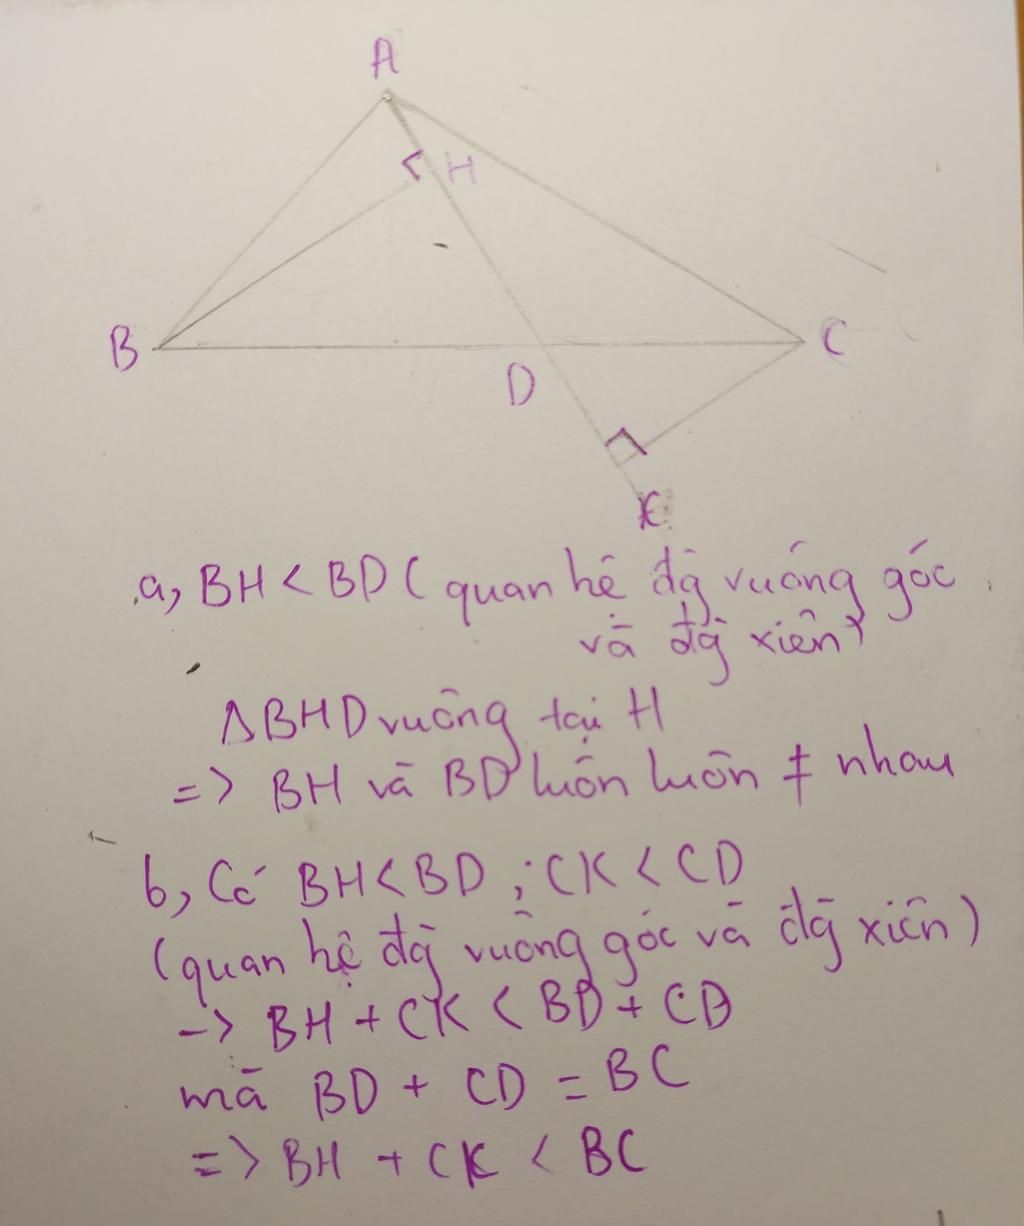 A
H
B
C
D
K
a, BH < BD ( quan hệ đg vuông góc
và đg xiên)
ΔBHD vuông tại H
=> BH và BD luôn luôn ≠ nhau
b, Có BH < BD ; CK < CD
(quan hệ đg vuông góc và đg xiên)
-> BH + CK < BD + CD
mà BD + CD = BC
=> BH + CK < BC